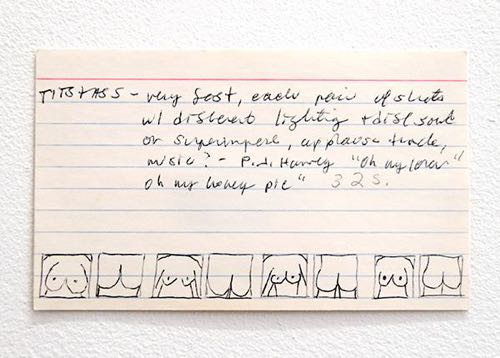 TITS + ASS - very fast, each pair of shots
w/ different lighting + diff sound
or superimpose, applause track,
music? - P.J. Harvey "Oh my lover"
oh my honey pie" 32s.